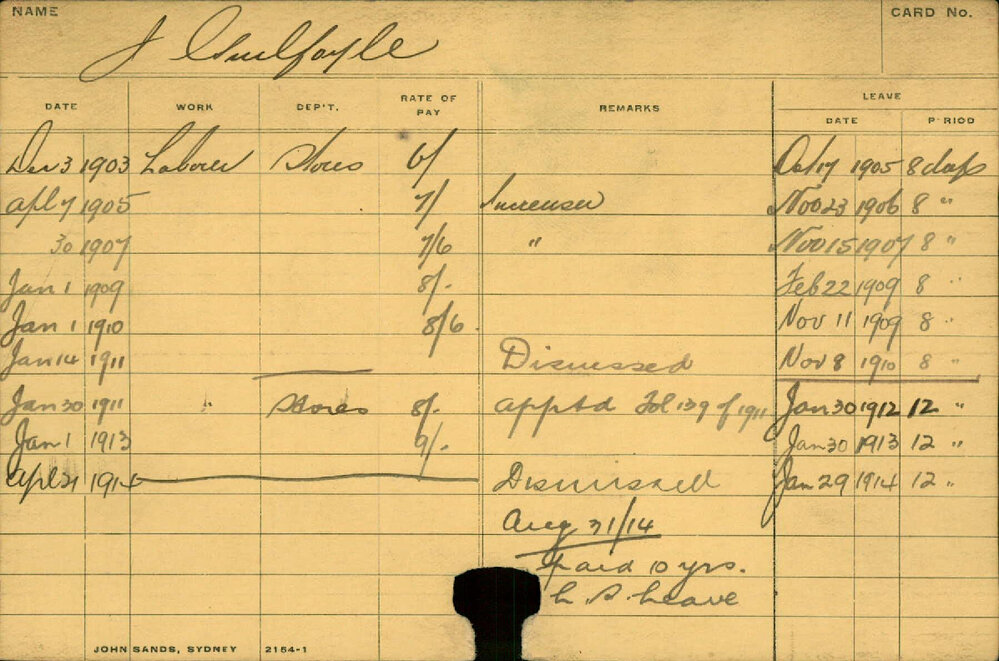 NAME J Guilfoyle CARD No.
LEAVE
DATE WORK DEP'T. RATE OF PAY REMARKS DATE P RIOD
Dec 3 1903 Laborer Stores 6/ Oct 17 1905 8 days
Apl 7 1905 7/ Increase Nov 23 1906 8 "
30 1907 7/6 " Nov 15 1907 8 "
Jan 1 1909 8/- Feb 22 1909 8 "
Jan 1 1910 8/6 Nov 11 1909 8 "
Jan 14 1911 Dismissed Nov 8 1910 8 "
Jan 30 1911 " Stores 8/- apptd Fol 139 of 1911 Jan 30 1912 12 "
Jan 1 1913 9/- Jan 30 1913 12 "
Apl 21 1914 Dismissed Jan 29 1914 12 "
Aug 31/14
paid 10 yrs.
L. S. Leave
JOHN SANDS, SYDNEY 2154-1